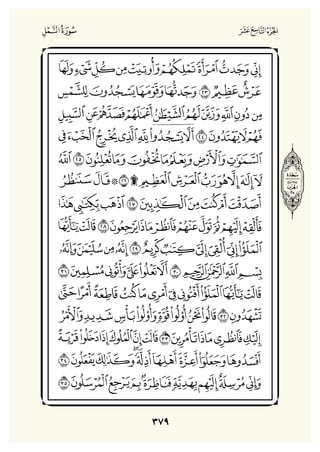 الجزء التاسع عشر
سورة النمل
إِنِّي وَجَدتُّ ٱمْرَأَةً تَمْلِكُهُمْ وَأُوتِيَتْ مِن كُلِّ شَىْءٍ وَلَهَا
عَرْشٌ عَظِيمٌ ٢٣ وَجَدتُّهَا وَقَوْمَهَا يَسْجُدُونَ لِلشَّمْسِ
مِن دُونِ ٱللَّهِ وَزَيَّنَ لَهُمُ ٱلشَّيْطَٰنُ أَعْمَٰلَهُمْ فَصَدَّهُمْ عَنِ ٱلسَّبِيلِ
فَهُمْ لَا يَهْتَدُونَ ٢٤ أَلَّا يَسْجُدُوا۟ لِلَّهِ ٱلَّذِى يُخْرِجُ ٱلْخَبْءَ فِى
ٱلسَّمَٰوَٰتِ وَٱلْأَرْضِ وَيَعْلَمُ مَا تُخْفُونَ وَمَا تُعْلِنُونَ ٢٥ ٱللَّهُ
لَآ إِلَٰهَ إِلَّا هُوَ رَبُّ ٱلْعَرْشِ ٱلْعَظِيمِ ۩ ٢٦ ۞ قَالَ سَنَنظُرُ
أَصَدَقْتَ أَمْ كُنتَ مِنَ ٱلْكَٰذِبِينَ ٢٧ ٱذْهَب بِّكِتَٰبِى هَٰذَا
فَأَلْقِهْ إِلَيْهِمْ ثُمَّ تَوَلَّ عَنْهُمْ فَٱنظُرْ مَاذَا يَرْجِعُونَ ٢٨ قَالَتْ يَٰٓأَيُّهَا
ٱلْمَلَؤُا۟ إِنِّىٓ أُلْقِىَ إِلَىَّ كِتَٰبٌ كَرِيمٌ ٢٩ إِنَّهُۥ مِن سُلَيْمَٰنَ وَإِنَّهُۥ
بِسْمِ ٱللَّهِ ٱلرَّحْمَٰنِ ٱلرَّحِيمِ ٣٠ أَلَّا تَعْلُوا۟ عَلَىَّ وَأْتُونِى مُسْلِمِينَ ٣١
قَالَتْ يَٰٓأَيُّهَا ٱلْمَلَؤُا۟ أَفْتُونِى فِىٓ أَمْرِى مَا كُنتُ قَاطِعَةً أَمْرًا حَتَّىٰ
تَشْهَدُونِ ٣٢ قَالُوا۟ نَحْنُ أُو۟لُوا۟ قُوَّةٍ وَأُو۟لُوا۟ بَأْسٍ شَدِيدٍ وَٱلْأَمْرُ
إِلَيْكِ فَٱنظُرِى مَاذَا تَأْمُرِينَ ٣٣ قَالَتْ إِنَّ ٱلْمُلُوكَ إِذَا دَخَلُوا۟ قَرْيَةً
أَفْسَدُوهَا وَجَعَلُوٓا۟ أَعِزَّةَ أَهْلِهَآ أَذِلَّةً ۖ وَكَذَٰلِكَ يَفْعَلُونَ ٣٤
وَإِنِّى مُرْسِلَةٌ إِلَيْهِم بِهَدِيَّةٍ فَنَاظِرَةٌۢ بِمَ يَرْجِعُ ٱلْمُرْسَلُونَ ٣٥
٣٧٩